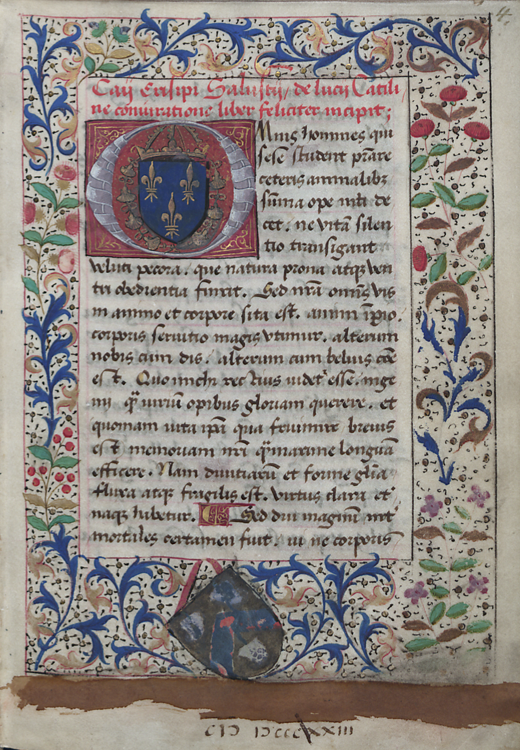 4.
Caij Crispi Salustij, de lucij Catili
ne coniuratione liber feliciter incipit;
Omnis homines qui
sese student prãre
ceteris animalibꝫ
sũma ope niti de
cet. ne vitã silen
tio transigant
veluti pecora. que natura prona atqꝫ ven
tri obedientia finxit. Sed nr̃a omnis vis
in animo et corpore sita est. animi impio.
corporis seruitio magis vtimur. alterum
nobis cum dis. alterum cum beluis cõe
est. Quo mihi rectius videtʳ esse. inge
nij q̃ʒ viriũ opibus gloriam querere. et
quoniam vita ipã qua fruimur breuis
est memoriam nrĩ q̃ʒmaxime longuã
efficere. Nam diuitiarũ et forme glĩa
fluxa atqꝫ fragilis est. virtus clara et
naqꝫ habetur. Sed diu magnũ int
mortales certamen fuit. vi ne corporis